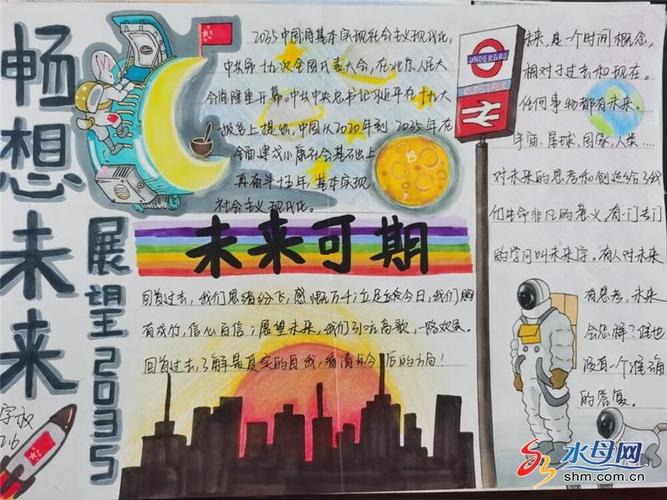 畅想未来
展望2035
2035中国将基本实现社会主义现代化,
中共第十九次全国代表大会,在北京人民大
会堂隆重开幕。中共中央总书记习近平在十九大
报告上提出,中国从2020年到2035年在
全面建成小康社会基础上
再奋斗十五年,基本实现
社会主义现代化。
未来可期
回首过去,我们思绪纷飞,感慨万千;立足于今日,我们胸
有成竹,信心百倍;展望未来,我们引吭高歌,一路欢笑。
回首过去,了解最真实的自我,看清今后的方向!
UNDERGRO
未来,是一个时间概念,
相对于过去和现在。
任何事物都有未来。
宇宙、星球、国家、人类……
对未来的思考和创造给了我
们生命非凡的意义。有一门专门
的学问叫未来学。有人对未来
有思考,未来
会怎样?谁也
没有一个准确
的答复。
水母网
shm.com.cn